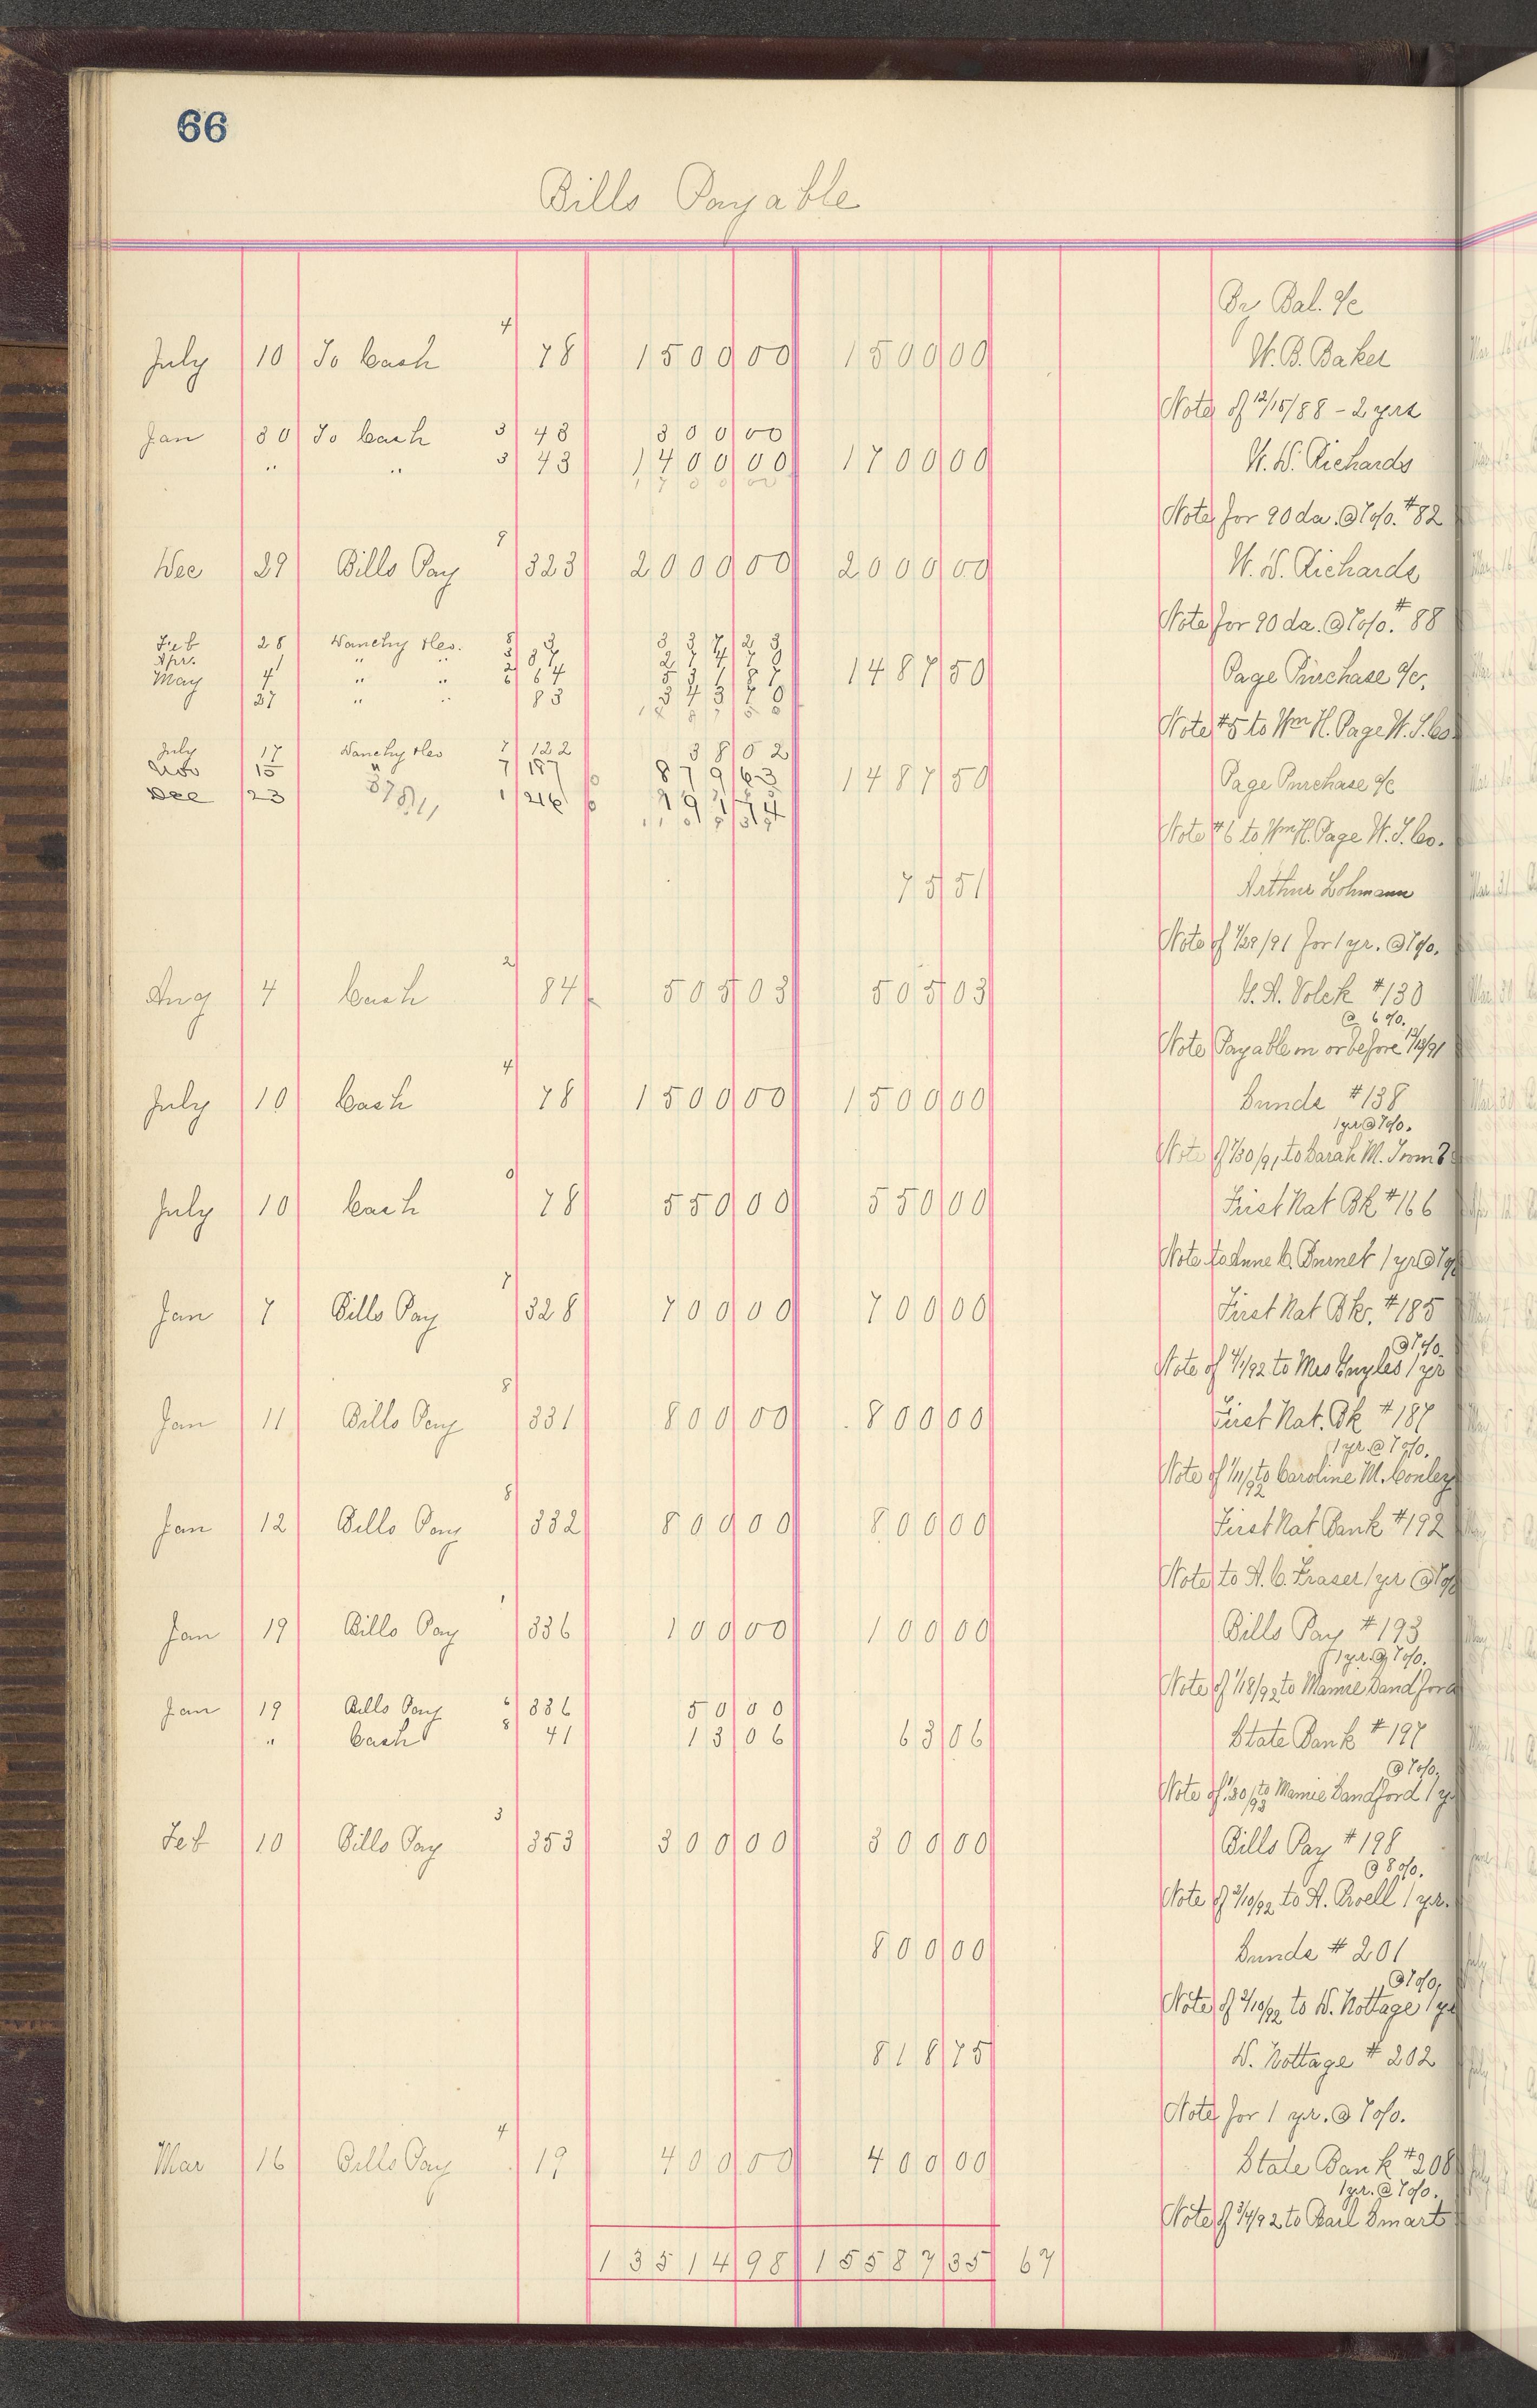 66
Bills Payable
By Bal. a/c
4
July 10 To Cash 78 1500 00 1500 00 W. B. Baker
Note of 12/15/88 - 2 yrs
Jan 30 To Cash 3 43 300 00
" " 3 43 1400 00 1700 00 W. D. Richards
1700 00
Note for 90 da. @ 7%. #82
9
Dec 29 Bills Pay 323 2000 00 2000 00 W. D. Richards
Note for 90 da. @ 7%. #88
Feb 28 3 337 23
Apr. 1 " " 37 274 70 1487 50 Page Purchase a/c.
May 4 " " 64 531 87
27 " " 83 343 70
1487 50
Note #5 to Wm H. Page W. T. Co.
July 17 7 122 38 02
Nov 15 " 7 187 879 63 1487 50 Page Purchase a/c
Dec 23 1 216 191 74
Note #6 to Wm H. Page W. T. Co.
75 51 Arthur Lohmann
Note of 7/29/91 for 1 yr. @ 7%.
2
Aug 4 Cash 84 505 03 505 03 G. A. Volck #130
@ 6%.
Note Payable on or before 12/13/91
4
July 10 Cash 78 1500 00 1500 00 Sunds #138
1 yr @ 7%.
Note of 7/30/91 to Sarah M.
0
July 10 Cash 78 550 00 550 00 First Nat Bk #166
Note to Anne C. Burnet 1 yr @ 7%
7
Jan 7 Bills Pay 328 700 00 700 00 First Nat Bk. #185
@ 7%.
Note of 1/1/92 to Mrs 1 yr
8
Jan 11 Bills Pay 331 800 00 800 00 First Nat. Bk #187
1 yr. @ 7%.
Note of 1/11/92 to Caroline M. Conley
8
Jan 12 Bills Pay 332 800 00 800 00 First Nat Bank #192
Note to A. C. Fraser 1 yr @ 7%
1
Jan 19 Bills Pay 336 100 00 100 00 Bills Pay #193
1 yr. @ 7%.
Note of 1/18/92 to Mamie Sandford
Jan 19 Bills Pay 6 336 50 00
" Cash 8 41 13 06 63 06 State Bank #197
@ 7%.
Note of 1/30/93 to Mamie Sandford 1 y
3
Feb 10 Bills Pay 353 300 00 300 00 Bills Pay #198
@ 8%.
Note of 2/10/92 to A. 1 yr.
800 00 Sunds #201
@ 7%.
Note of 2/10/92 to D. Nottage 1 yr
818 75 D. Nottage #202
Note for 1 yr. @ 7%.
4
Mar 16 Bills Pay 19 400 00 400 00 State Bank #208
1 yr. @ 7%.
Note of 3/4/92 to Pearl Smart
13514 98 15587 35 67